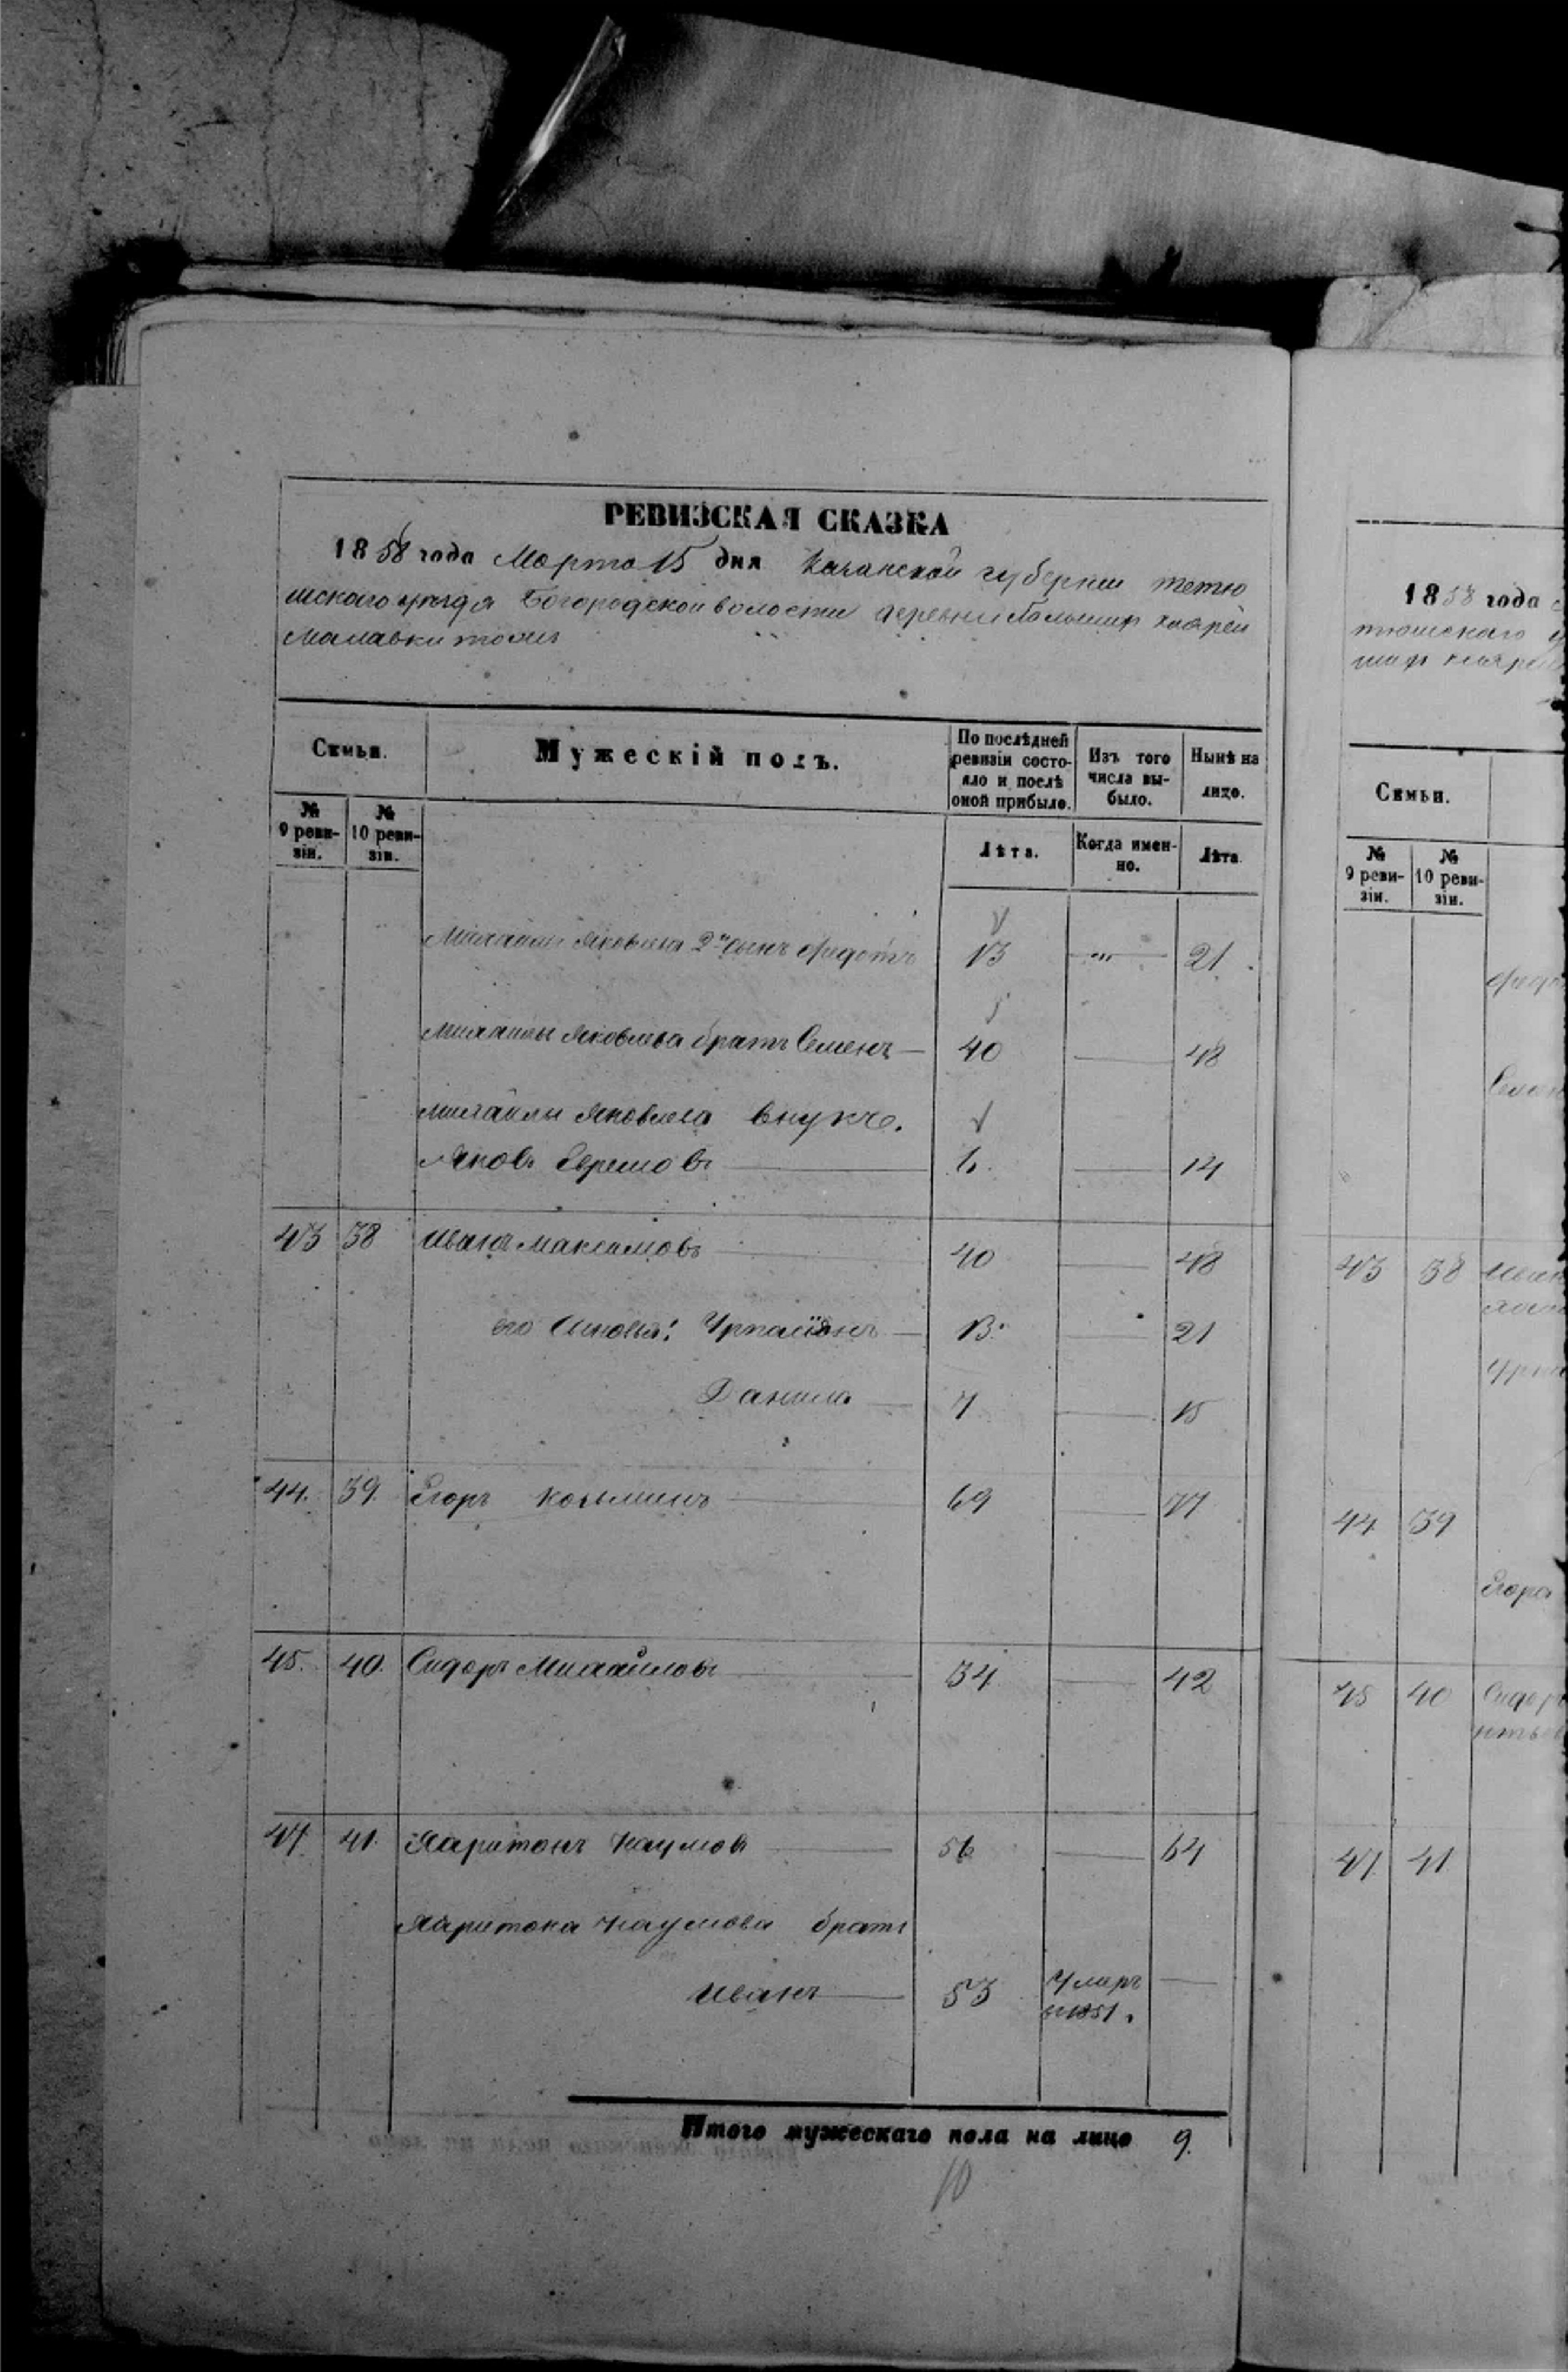 РЕВИЗСКАЯ СКАЗКА
1858 года Марта 15 дня Казанской губернии тетю
шскаго уѣзда Богородской волости деревни Большихъ
Семьи.
Мужескій полъ.
По послѣдней ревизіи состояло и послѣ оной прибыло.
Изъ того числа выбыло.
Нынѣ на лицо.
№ 9 ревизіи.
№ 10 ревизіи.
Лѣта.
Когда именно.
Лѣта.
Михаилы Яковлева 2й сынъ Федотъ 13 — " — 21.
Михаилы Яковлева братъ Семенъ — 40 — 48
Михаилы Яковлева внукъ.
Яковъ Ефремовъ — 6. — 14
43 38 Иванъ Максимовъ — 40 — 48
его Сыновья: — 13. — 21
Данила — 7 — 15
44. 39. Егоръ Козьминъ — 69 — 77
45. 40. Сидоръ Михайловъ — 34 — 42
47. 41. Харитонъ Наумовъ — 56 — 64
Харитона Наумова братъ
Иванъ — 53 Умеръ —
в 1851.
Итого мужескаго пола на лицо 9.
10
1858 года
тюшскаго
Семьи.
№ 9 ревизіи.
№ 10 ревизіи.
43 38
44 39
45 40
47. 41